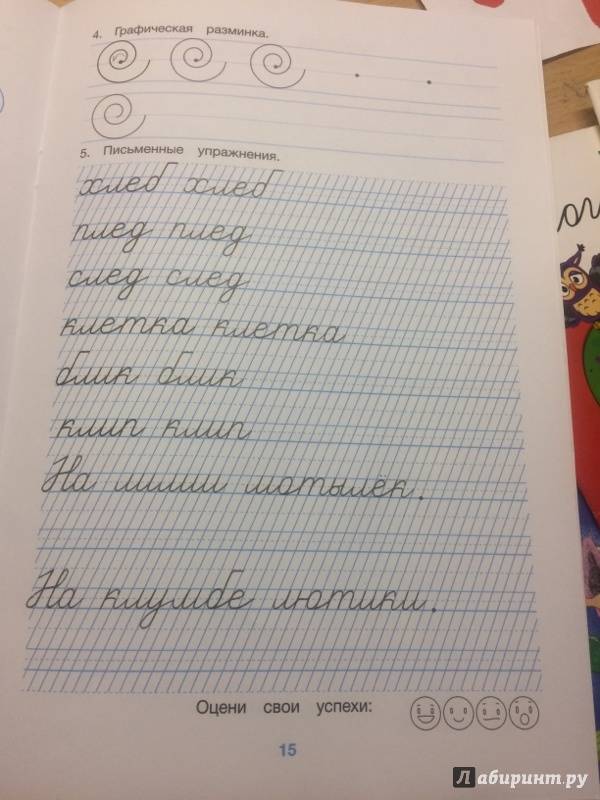 4. Графическая разминка.
5. Письменные упражнения.
хлеб хлеб
плед плед
след след
клетка клетка
блик блик
клип клип
На лилии мотылёк.
На клумбе лютики.
Оцени свои успехи:
15
Лабиринт.ру